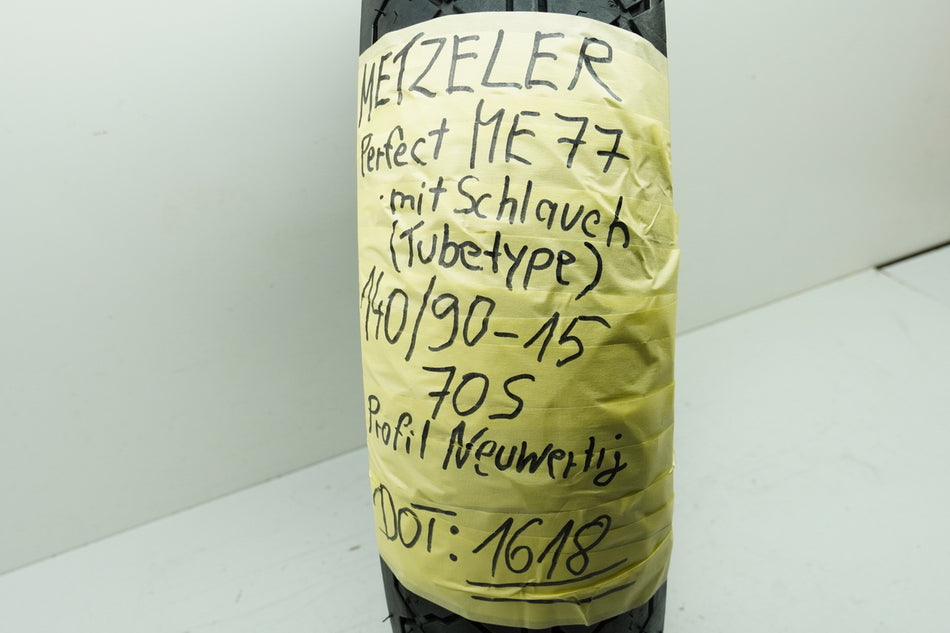 METZELER
Perfect ME 77
mit Schlauch
(Tubetype)
140/90-15
70S
Profil Neuwertig
DOT: 1618